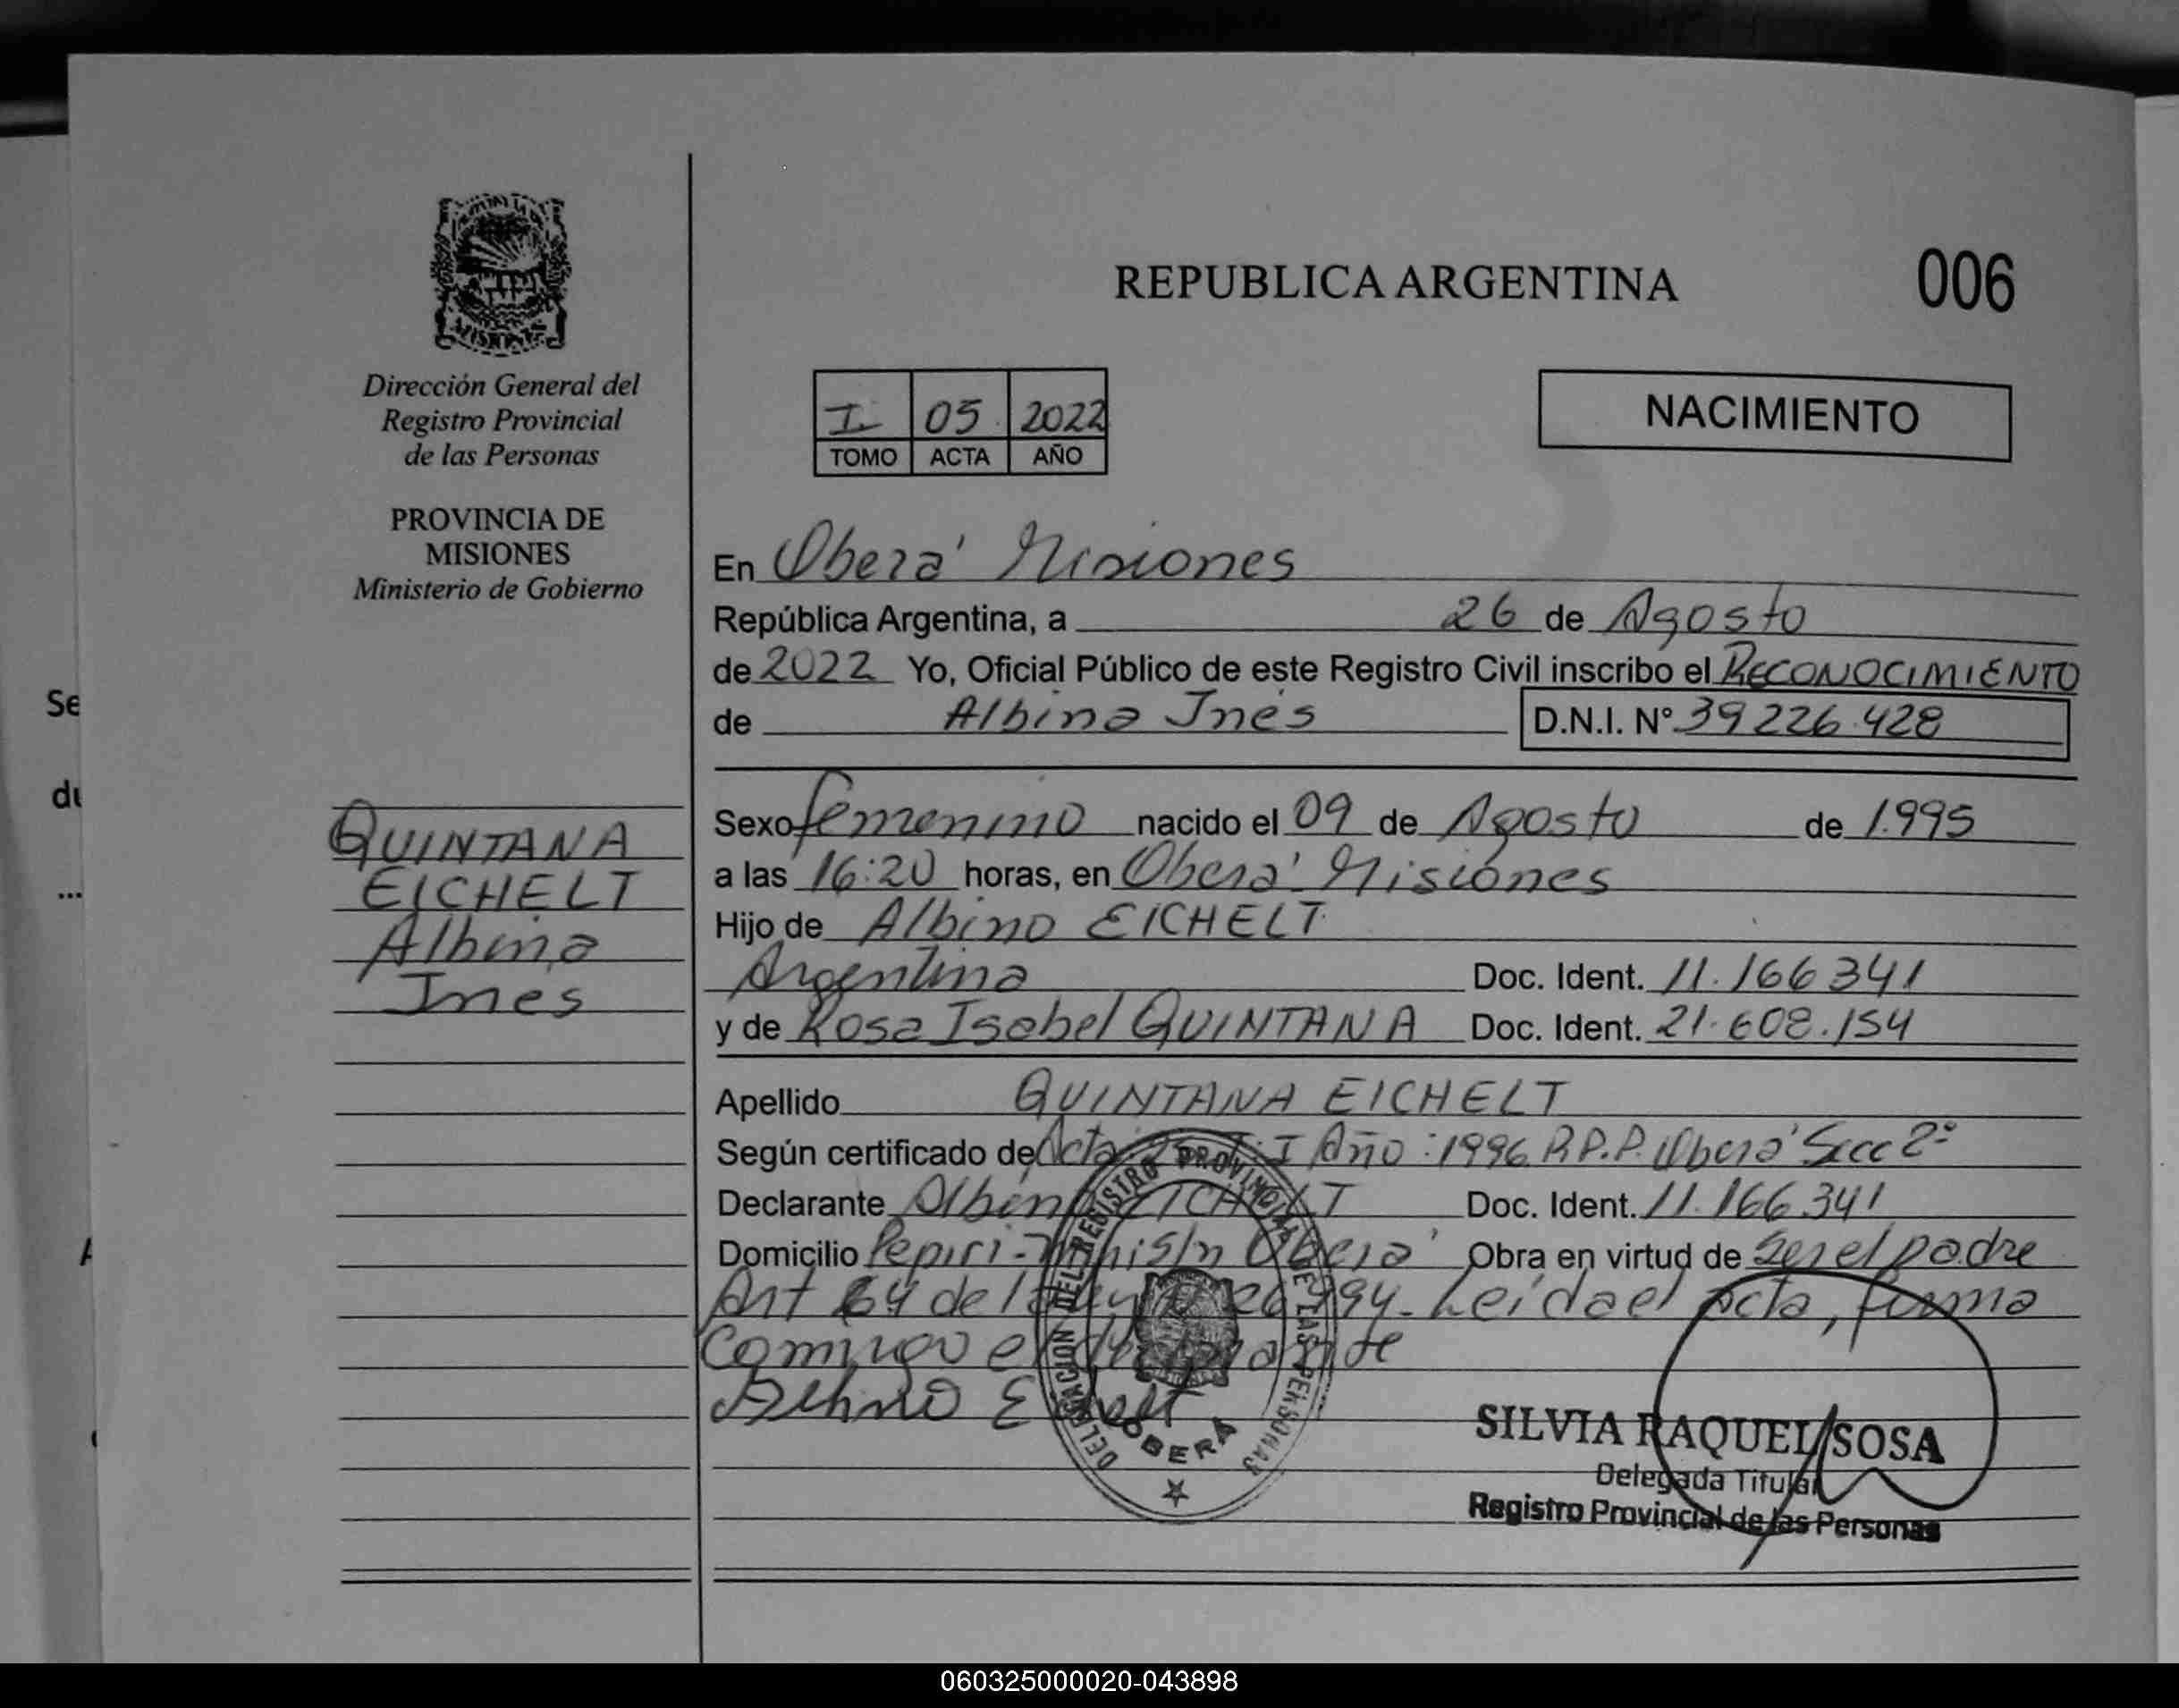 REPUBLICA ARGENTINA
006
Dirección General del
Registro Provincial
de las Personas
PROVINCIA DE
MISIONES
Ministerio de Gobierno
I 05 2022
TOMO ACTA AÑO
NACIMIENTO
En Oberá Misiones
República Argentina, a 26 de Agosto
de 2022 Yo, Oficial Público de este Registro Civil inscribo el RECONOCIMIENTO
de Albina Inés D.N.I. N° 39 226.428
QUINTANA
EICHELT
Albina
Ines
Sexo femenino nacido el 09 de Agosto de 1.995
a las 16:20 horas, en Oberá Misiones
Hijo de Albino EICHELT
Argentina Doc. Ident. 11.166 341
y de Rosa Isabel QUINTANA Doc. Ident. 21.608.154
Apellido QUINTANA EICHELT
Según certificado de Acta I Año: 1996 R.P.P. Oberá Secc 2º
Declarante Albino EICHELT Doc. Ident. 11.166.341
Domicilio Pepiri - s/n Oberá Obra en virtud de ser el padre
Art 64 de la Leída el acta, firma
conmigo el declarante
DELEGACION DEL REGISTRO PROVINCIAL DE LAS PERSONAS
OBERA
SILVIA RAQUEL SOSA
Delegada Titular
Registro Provincial de las Personas
Se
du
...
060325000020-043898